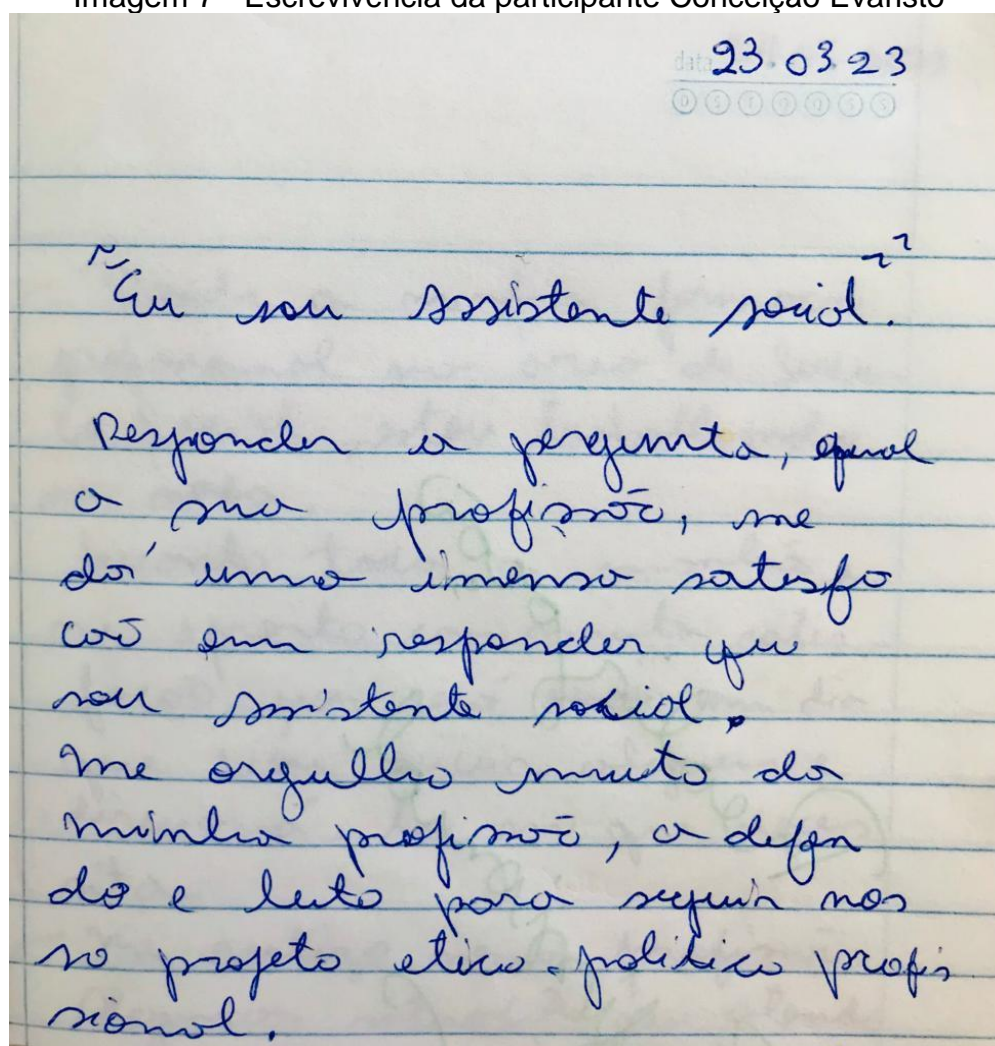 Imagem 7 - Escrevivência da participante Conceição Evaristo
data 23.03.23
D S T Q Q S S
"Eu sou Assistente social."
Responder a pergunta, qual
a sua profissão, me
dá uma imensa satisfa
ção em responder que
sou assistente social.
Me orgulho muito da
minha profissão, a defen
do e luto para seguir nos
so projeto etico-politico profis
sional.